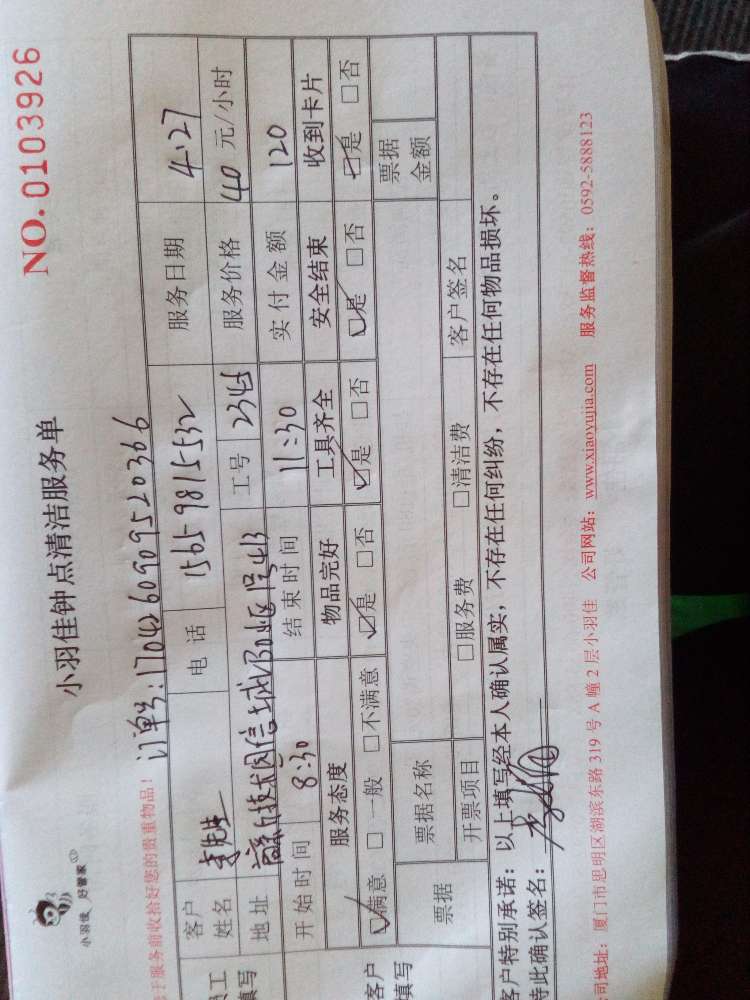 小羽佳 好管家
小羽佳钟点清洁服务单
NO. 0103926
于服务前收拾好您的贵重物品！
订单号：17042609095 20366
客户姓名 李先生 电话 15659815532 服务日期 4.27
地址 工号 2345 服务价格 40 元/小时
开始时间 8:30 结束时间 11:30 实付金额 120
服务态度 物品完好 工具齐全 安全结束 收到卡片
☑满意 □一般 □不满意 ☑是 □否 ☑是 □否 ☑是 □否 ☑是 □否
票据 票据名称 票据金额
开票项目 □服务费 □清洁费 客户签名
员工填写
客户填写
客户特别承诺：以上填写经本人确认属实，不存在任何纠纷，不存在任何物品损坏。
特此确认签名：
司地址：厦门市思明区湖滨东路 319 号 A 幢 2 层小羽佳 公司网站：www.xiaoyujia.com 服务监督热线：0592-5888123